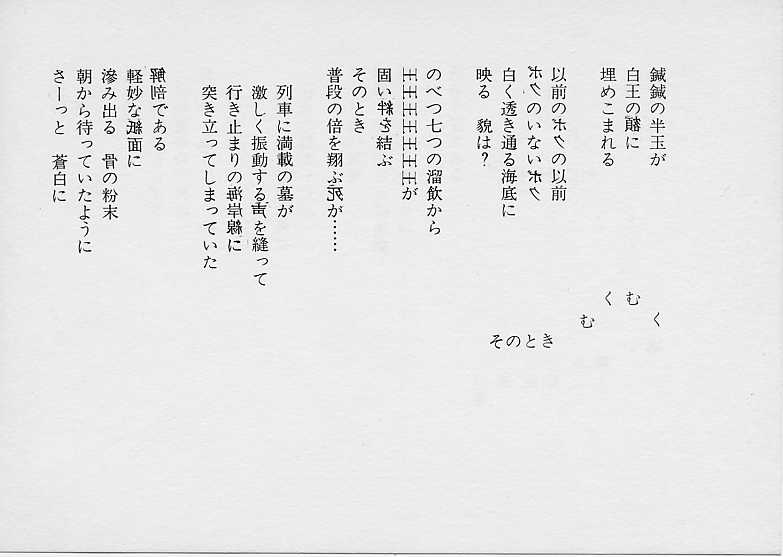 鍼鍼の半玉が
白王の額に
埋めこまれる
くむくむ
そのとき
以前のボクの以前
ボクのいないボク
白く透き通る海底に
映る　貌は？
のべつ七つの溜飲から
王王王王王王王が
固い絆を結ぶ
そのとき
普段の倍を翔ぶ死が……
列車に満載の墓が
激しく振動する声を縫って
行き止まりの海岸線に
突き立ってしまっていた
解剖である
軽妙な紙面に
滲み出る　骨の粉末
朝から待っていたように
さーっと　蒼白に